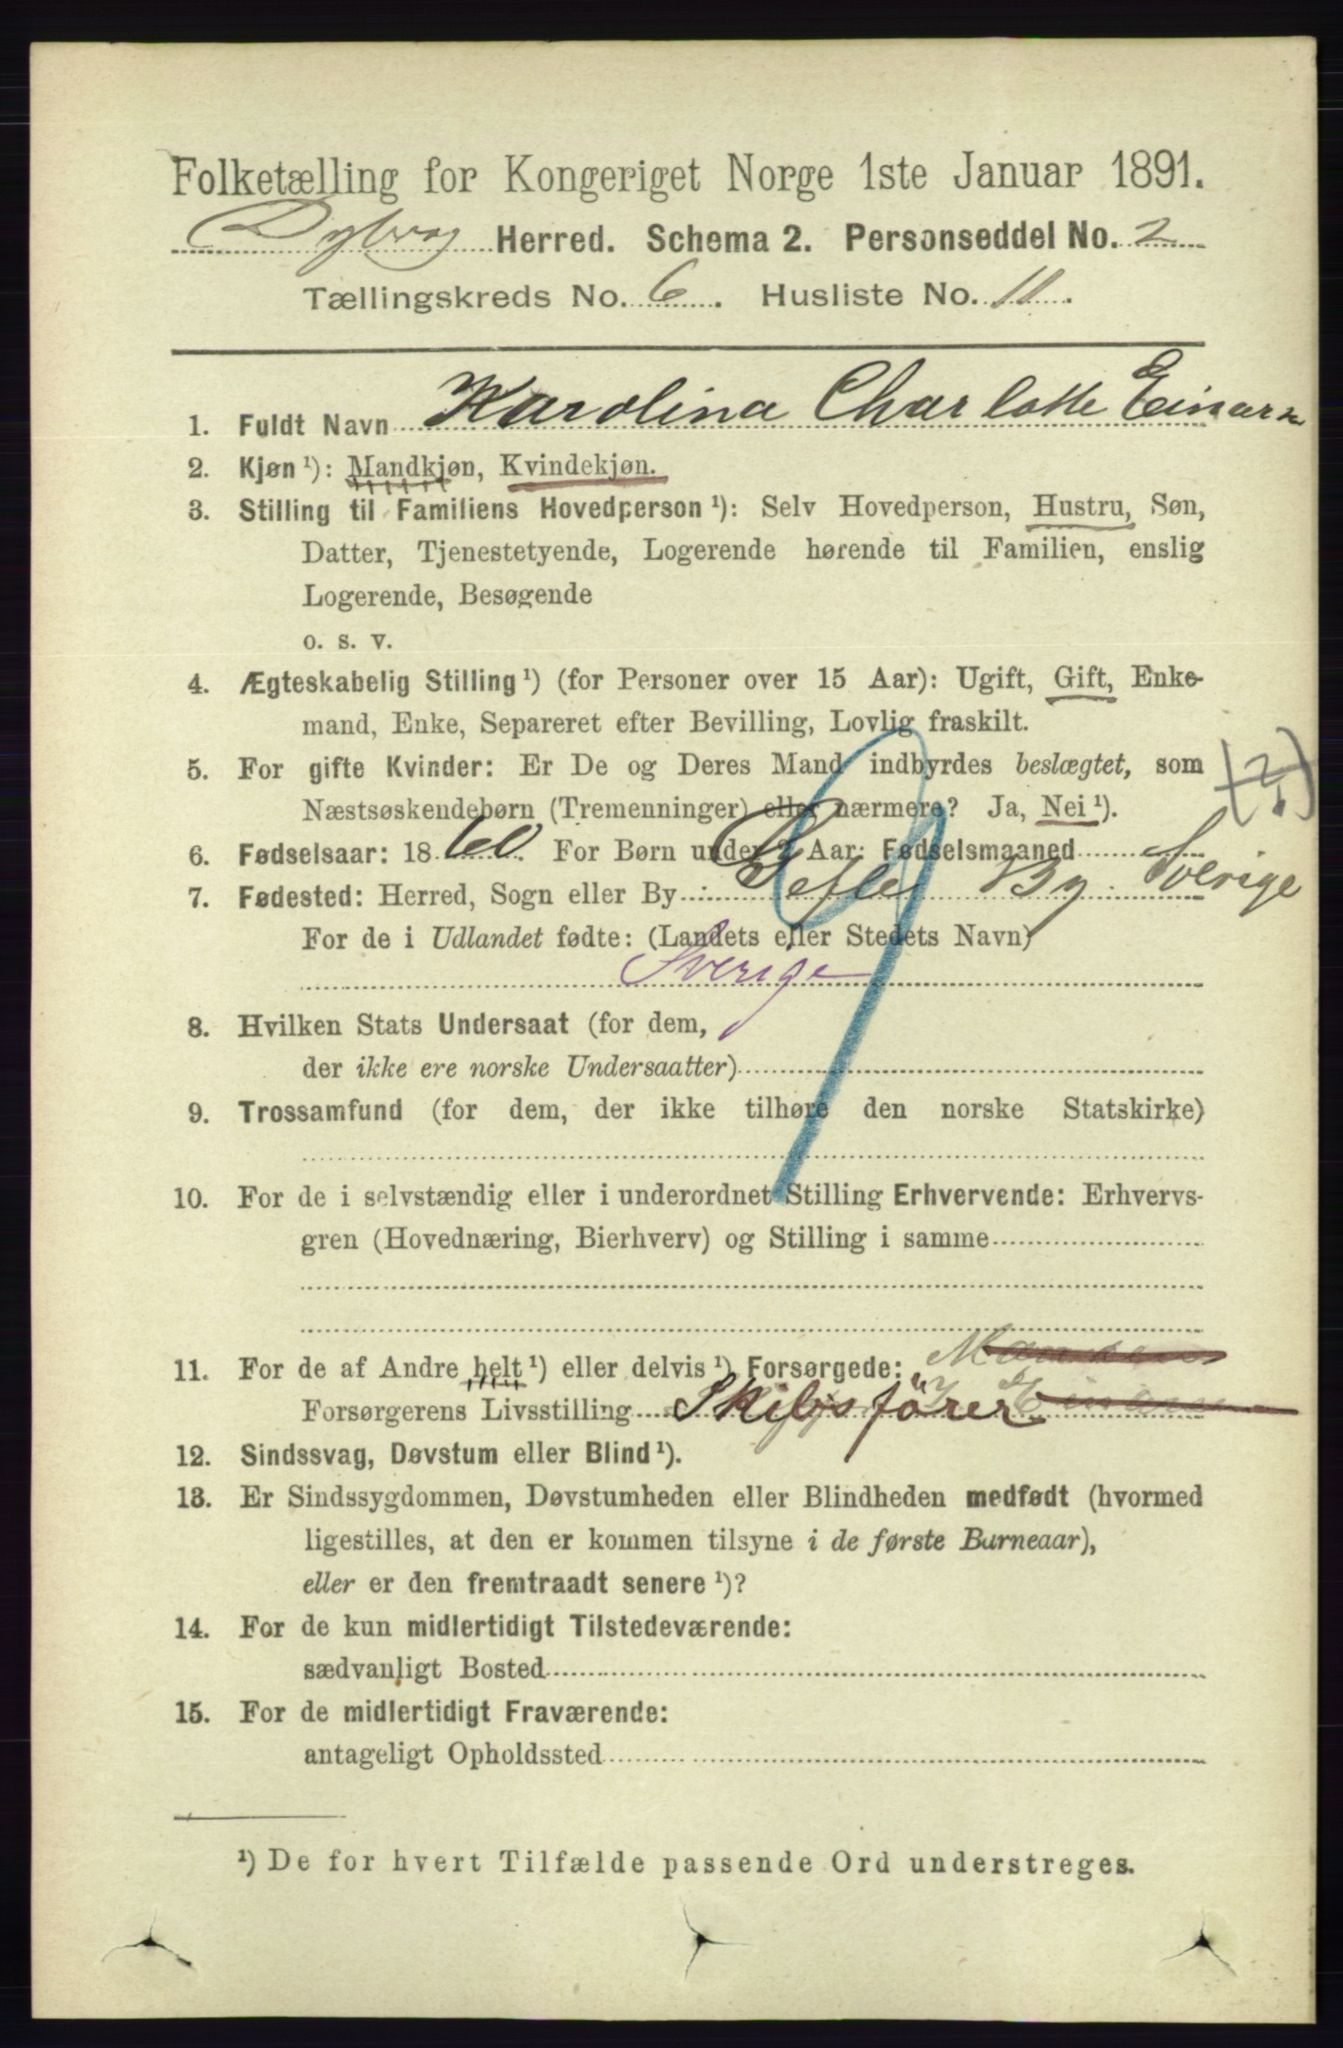 Folketælling for Kongeriget Norge 1ste Januar 1891.
Dybvag Herred. Schema 2. Personseddel No. 2
Tællingskreds No. 6. Husliste No. 11.
1. Fuldt Navn Karolina Charlotte Einarsen
2. Kjøn ¹): Mandkjøn, Kvindekjøn.
3. Stilling til Familiens Hovedperson ¹): Selv Hovedperson, Hustru, Søn,
Datter, Tjenestetyende, Logerende hørende til Familien, enslig
Logerende, Besøgende
o. s. v.
4. Ægteskabelig Stilling ¹) (for Personer over 15 Aar): Ugift, Gift, Enke-
mand, Enke, Separeret efter Bevilling, Lovlig fraskilt.
5. For gifte Kvinder: Er De og Deres Mand indbyrdes beslægtet, som
Næstsøskendebørn (Tremenninger) eller nærmere? Ja, Nei ¹).
6. Fødselsaar: 1860. For Børn under 2 Aar: Fødselsmaaned
7. Fødested: Herred, Sogn eller By Gefle By. Sverige
For de i Udlandet fødte: (Landets eller Stedets Navn)
Sverige
8. Hvilken Stats Undersaat (for dem,
der ikke ere norske Undersaatter)
9. Trossamfund (for dem, der ikke tilhøre den norske Statskirke)
10. For de i selvstændig eller i underordnet Stilling Erhvervende: Erhvervs-
gren (Hovednæring, Bierhverv) og Stilling i samme
11. For de af Andre helt ¹) eller delvis ¹) Forsørgede:
Forsørgerens Livsstilling Skibsfører
12. Sindssvag, Døvstum eller Blind ¹).
13. Er Sindssygdommen, Døvstumheden eller Blindheden medfødt (hvormed
ligestilles, at den er kommen tilsyne i de første Barneaar),
eller er den fremtraadt senere ¹)?
14. For de kun midlertidigt Tilstedeværende:
sædvanligt Bosted
15. For de midlertidigt Fraværende:
antageligt Opholdssted
¹) De for hvert Tilfælde passende Ord understreges.